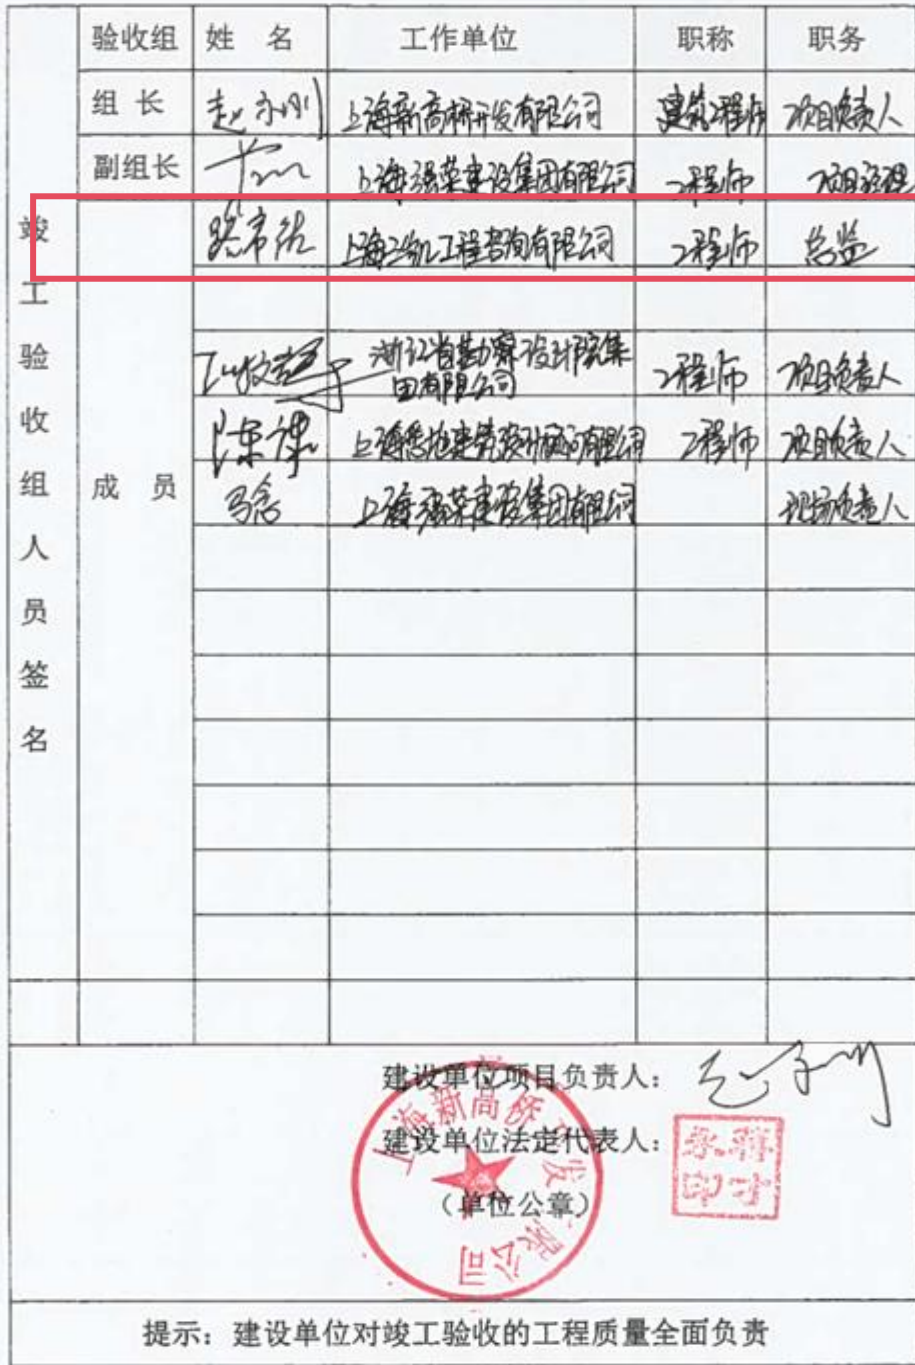 验收组 姓 名 工作单位 职称 职务
组 长 赵永刚 上海新高桥开发有限公司 建筑工程师 项目负责人
副组长 上海强荣建设集团有限公司 工程师 项目经理
上海 工程咨询有限公司 工程师 总监
浙江省勘察设计院集
团有限公司 工程师 项目负责人
陈 上海 建筑设计 有限公司 工程师 项目负责人
马念 上海强荣建设集团有限公司 现场负责人
成 员
竣工验收组人员签名
建设单位项目负责人:
建设单位法定代表人:
(单位公章)
上海新高桥开发有限公司
提示: 建设单位对竣工验收的工程质量全面负责